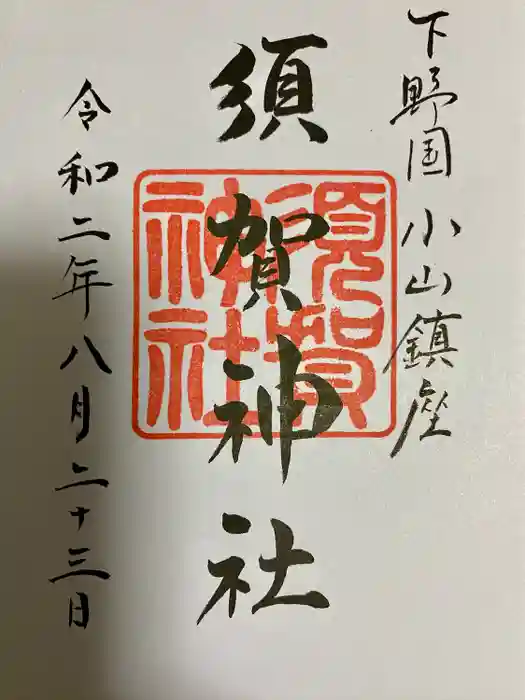 下野国小山鎮座
須賀神社
須賀神社
令和二年八月二十三日